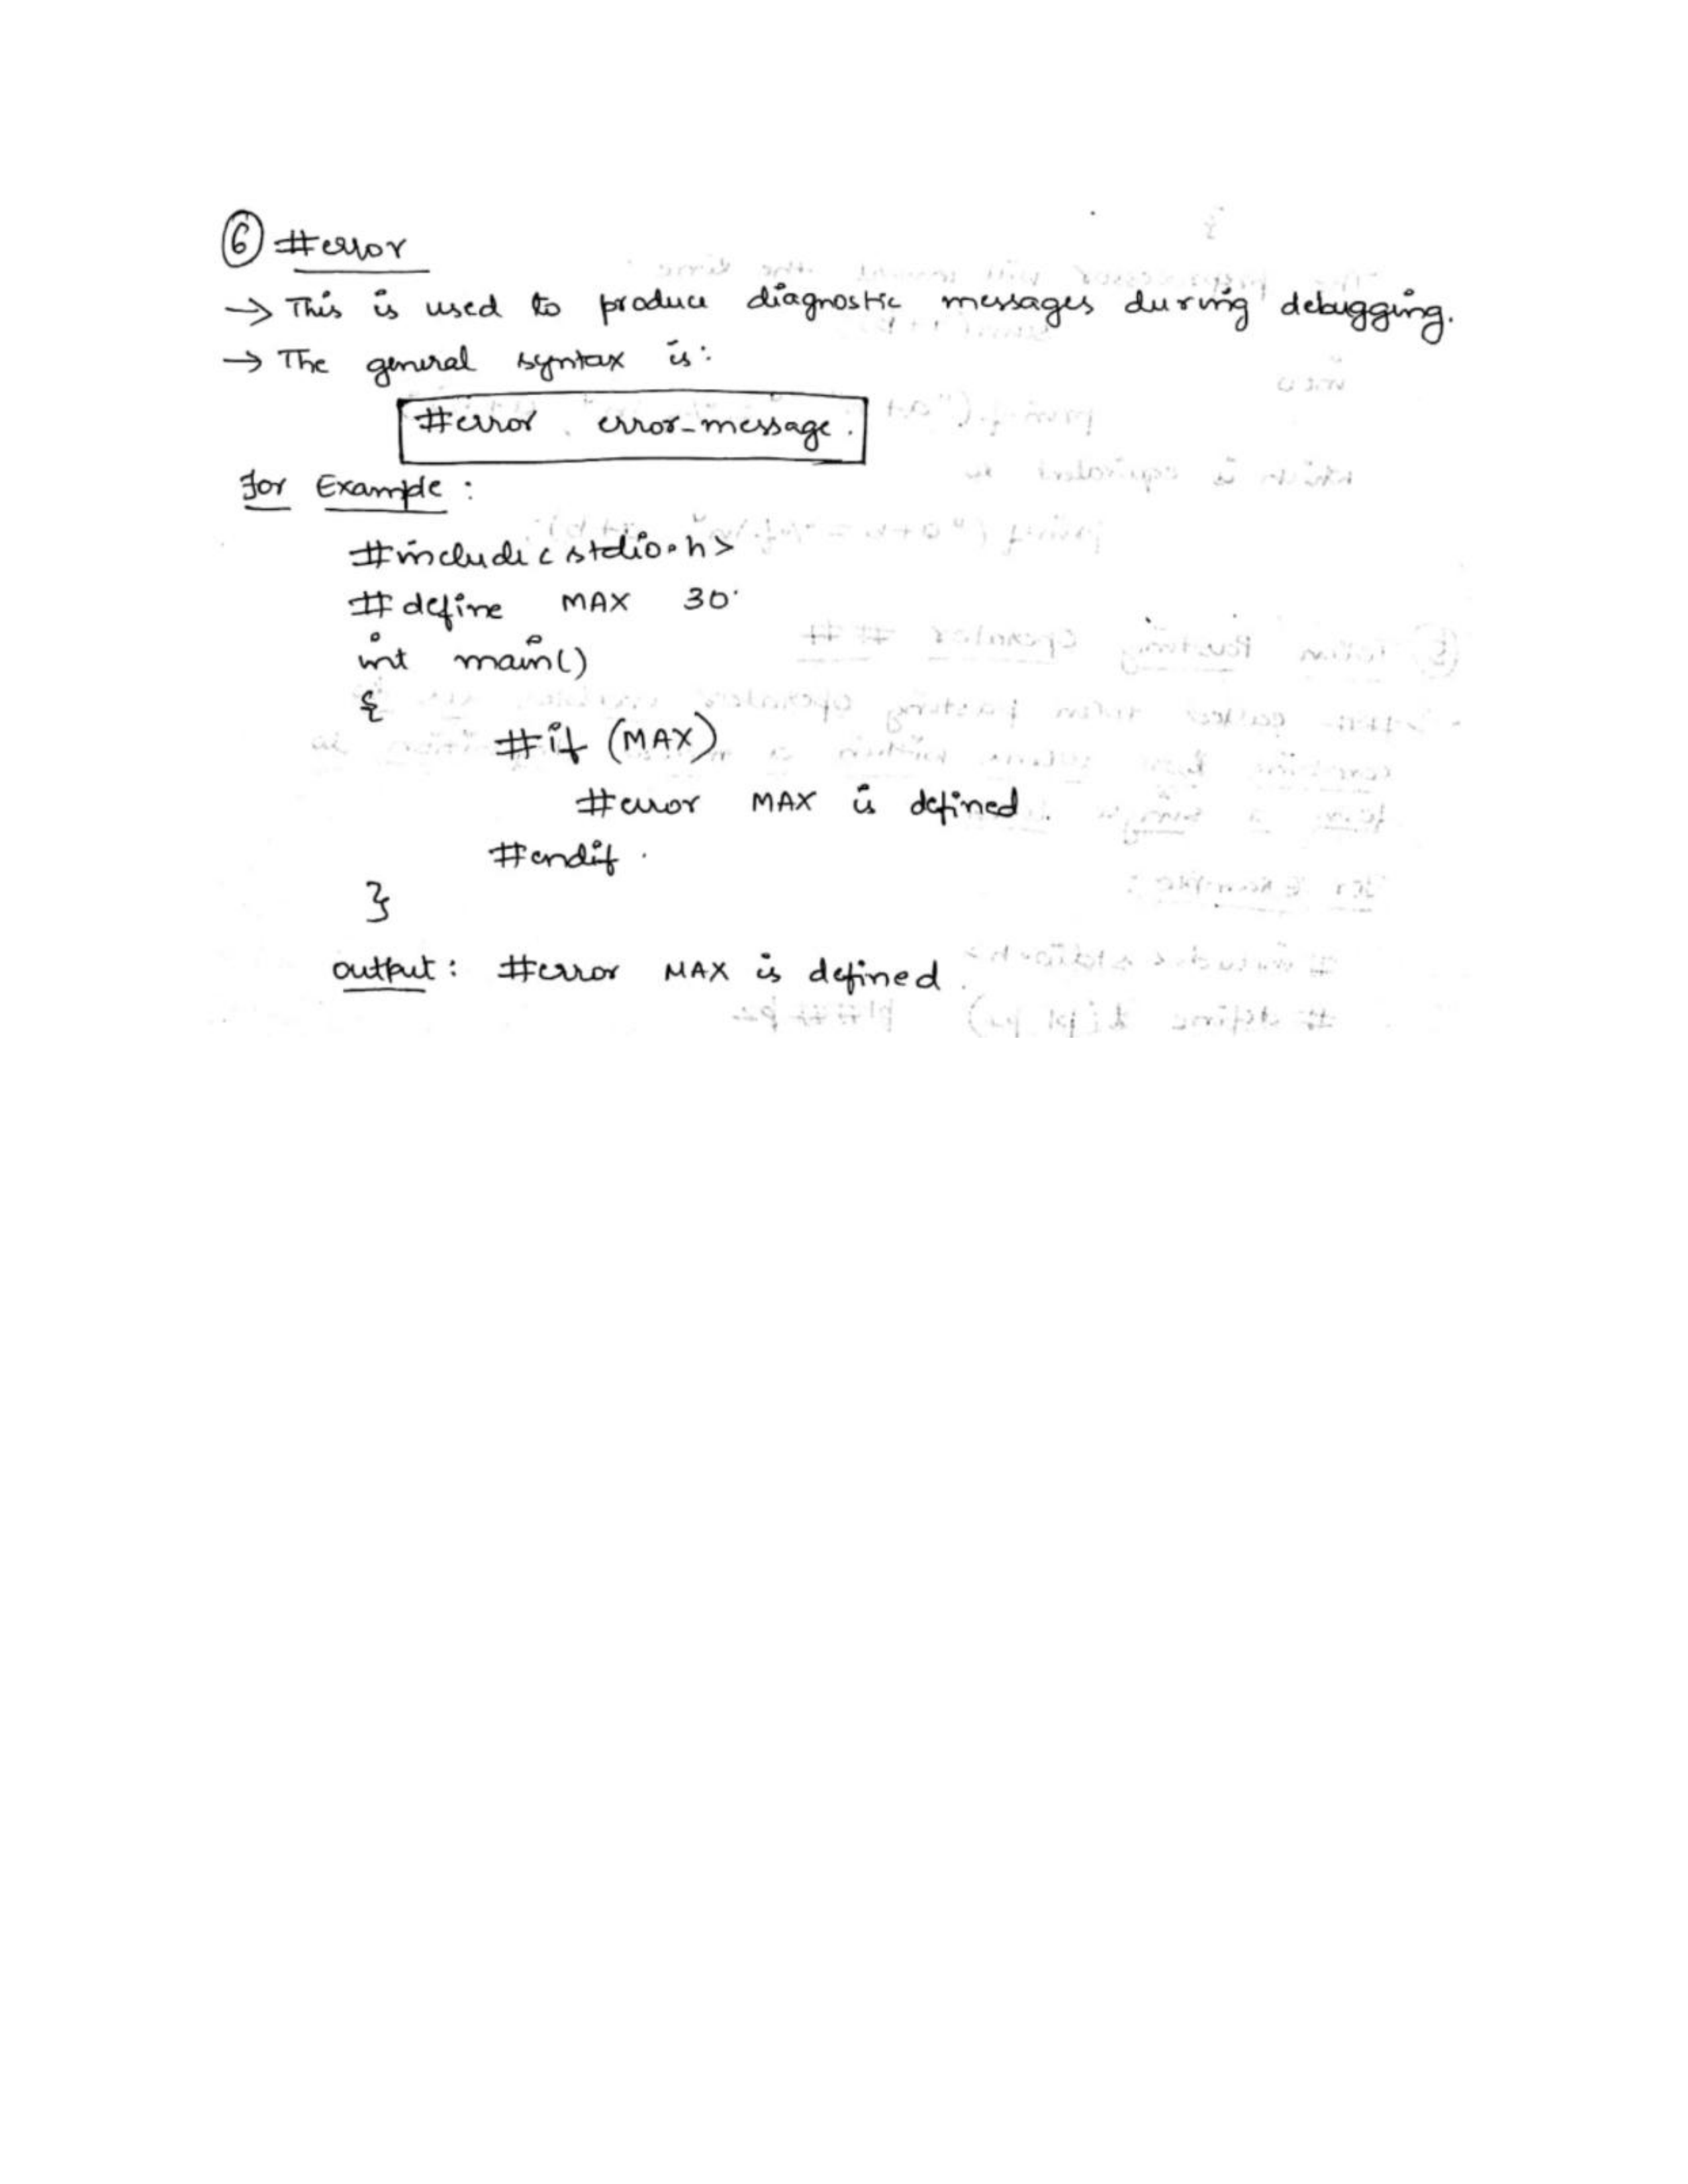 ⑥ #error
→ This is used to produce diagnostic messages during debugging.
→ The general syntax is:
#error error-message.
for Example:
#include<stdio.h>
#define MAX 30
int main()
{
#if (MAX)
#error MAX is defined
#endif.
}
output: #error MAX is defined.